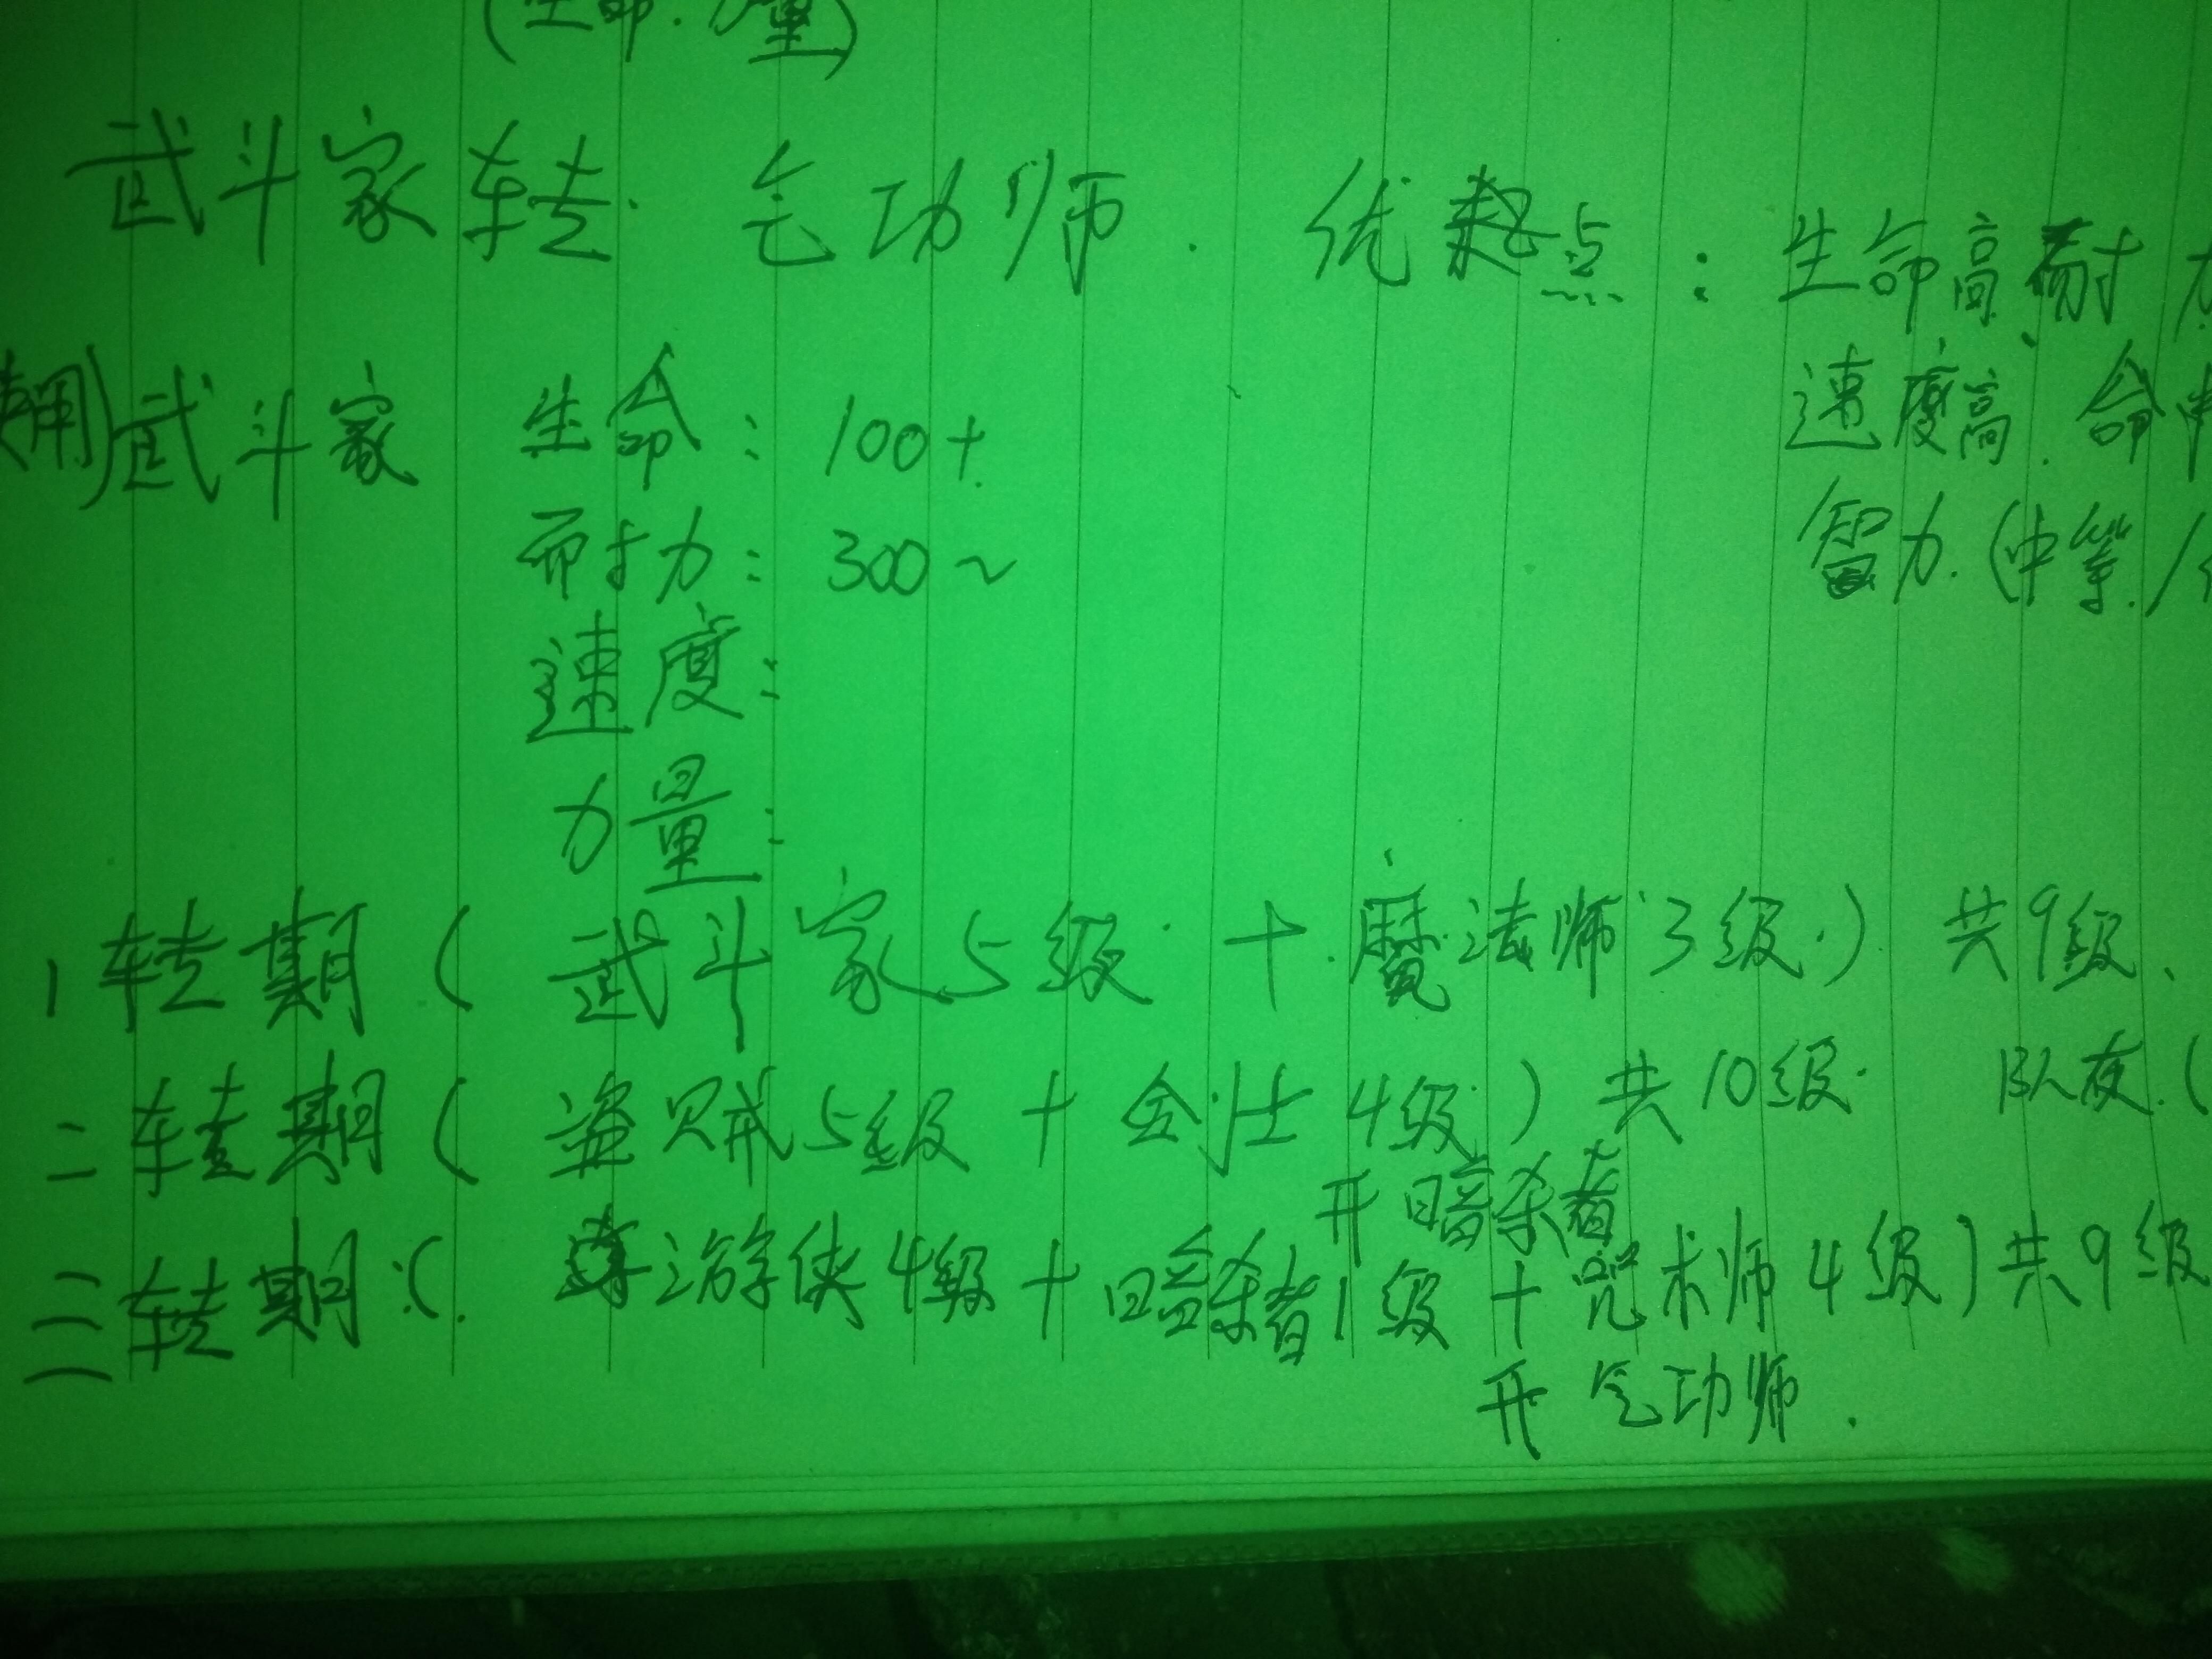 (生命.力量)
武斗家转 气功师. 优起点: 生命高、耐力
速度高.命中
用)武斗家 生命: 100+
智力.(中等/
耐力: 300~
速度:
力量:
1转期( 武斗家5级 + 魔法师3级.) 共9级、
二转期( 盗贼5级 + 剑士4级) 共10级.
开暗杀者
三转期:( 游侠4级 + 暗杀者1级 + 咒术师4级)共9级
开气功师.